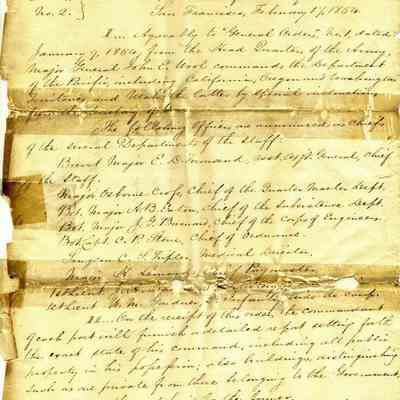 No. 2.
San Francisco, February 17, 1854.
I... Agreably to "General Orders," No. 1, dated
January 9, 1854, from the Head Quarters of the Army,
Major General John E. Wool commands the Department
of the Pacific, including California, Oregon and Washington
Territories, and Utah, the latter by special instructions
from the
The following officers are announced as Chiefs
of the several Departments of the Staff:
Brevet Major E. D. Townsend, Asst. Adjt. General, Chief
of the Staff.
Major Osborne Cross, Chief of the Quarter Master Dept.
Bvt. Major A. B. Eaton, Chief of the Subsistence Dept.
Bvt. Major J. G. Barnard, Chief of the Corps of Engineers.
Bvt. Capt. C. P. Stone, Chief of Ordnance.
Surgeon C. S. Tripler, Medical Director.
Major H. Leonard, Chief Paymaster.
1st Lieut. W. M. Gardner, 2 Infantry, aide de camp.
II... On the receipt of this order, the commandant
of each post will furnish a detailed report setting forth
the exact state of his command, including all public
property in his possession; also buildings, distinguishing
such as are private from those belonging to the Government,